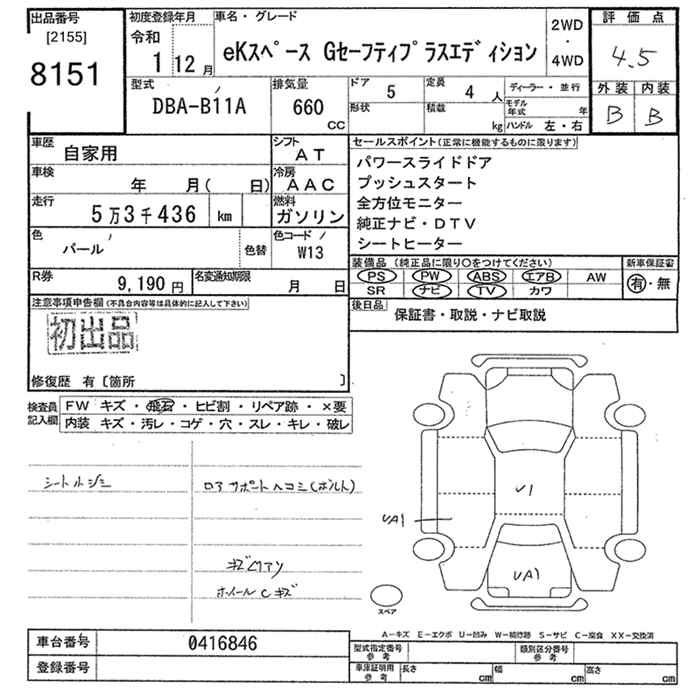 出品番号
[2155]
8151
初度登録年月
令和
1 12月
車名・グレード
eKスペース Gセーフティプラスエディション
2WD
・
4WD
評価点
4.5
外装 内装
B B
型式
DBA-B11A
排気量
660
CC
ドア 5
形状
定員 4 人
積載 kg
ディーラー・並行
モデル年式 年
ハンドル 左・右
車歴
自家用
シフト
AT
車検
年 月( 日)
冷房
AAC
走行
5万3千436 km
燃料
ガソリン
色
パール
色替
色コード
W13
R券
9,190円
名変通知期限
月 日
セールスポイント(正常に機能するものに限ります)
パワースライドドア
プッシュスタート
全方位モニター
純正ナビ・DTV
シートヒーター
装備品 (純正品に限り○をつけてください)
PS PW ABS エアB AW
SR ナビ TV カワ
新車保証書
有・無
後日品
保証書・取説・ナビ取説
注意事項申告欄(不具合内容等は具体的に記入して下さい)
初出品
修復歴 有 [箇所 ]
検査員
記入欄
FW キズ・飛石・ヒビ割・リペア跡・×要
内装 キズ・汚レ・コゲ・穴・スレ・キレ・破レ
シートルジミ
ロアサポートヘコミ(ボルト)
キズ凹アリ
ホイールCキズ
V1
UA1
UA1
スペア
A-キズ E-エクボ U-凹み W-補修跡 S-サビ C-腐食 XX-交換済
車台番号
0416846
登録番号
型式指定番号
参考
類別区分番号
参考
車庫証明用
参考
長さ cm
幅 cm
高さ cm